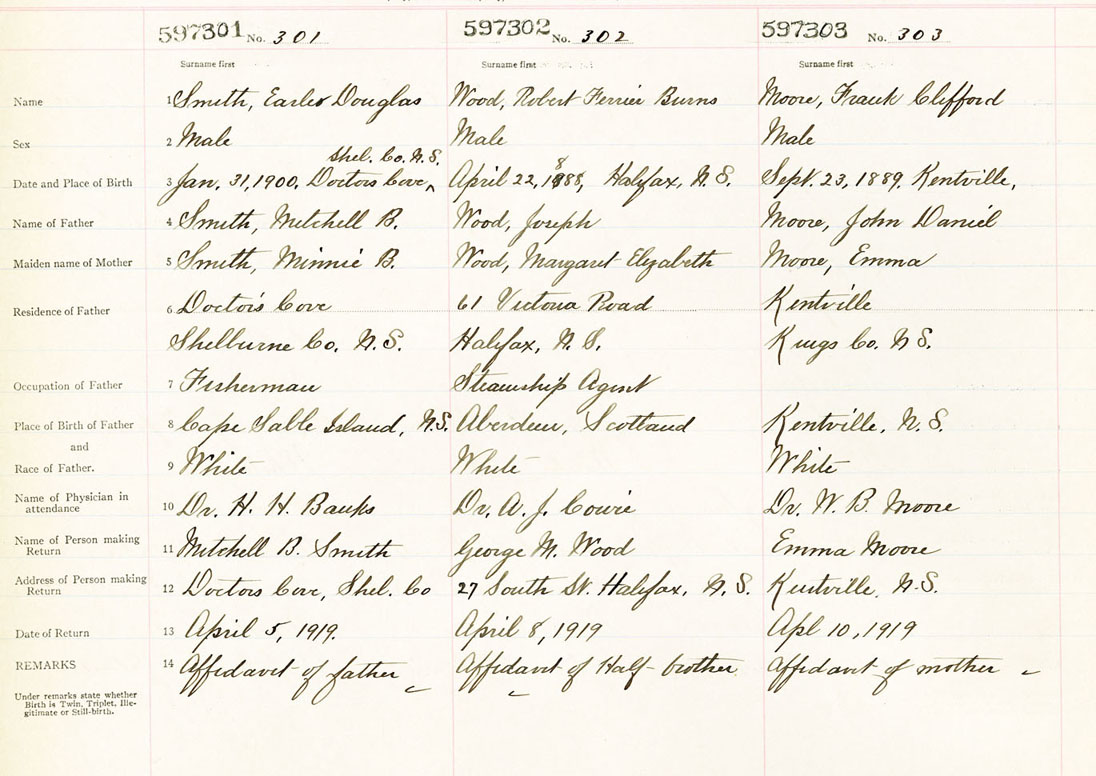 597301 No. 301 597302 No. 302 597303 No. 303
Surname first Surname first Surname first
Name 1 Smith, Earle Douglas Wood, Robert Ferrier Burns Moore, Frank Clifford
Sex 2 Male Male Male
Shel. Co. N.S. 8
Date and Place of Birth 3 Jan. 31, 1900. Doctors Cove ‸ April 22, 1888, Halifax, N.S. Sept. 23, 1889. Kentville,
Name of Father 4 Smith, Mitchell B. Wood, Joseph Moore, John Daniel
Maiden name of Mother 5 Smith, Minnie B. Wood, Margaret Elizabeth Moore, Emma
Residence of Father 6 Doctor's Cove 61 Victoria Road Kentville
Shelburne Co. N.S. Halifax, N.S. Kings Co. N S.
Occupation of Father 7 Fisherman Steamship Agent
Place of Birth of Father 8 Cape Sable Island, N.S. Aberdeen, Scotland Kentville, N.S.
and
Race of Father. 9 White White White
Name of Physician in attendance 10 Dr. H. H. Banks Dr. A. J. Cowie Dr. W. B. Moore
Name of Person making Return 11 Mitchell B. Smith George M. Wood Emma Moore
Address of Person making Return 12 Doctors Cove, Shel. Co 27 South St. Halifax, N.S. Kentville, N.S.
Date of Return 13 April 5, 1919. April 8, 1919 Apl 10, 1919
REMARKS 14 Affidavit of father Affidavit of Half-brother Affidavit of mother
Under remarks state whether
Birth is Twin, Triplet, Ille-
gitimate or Still-birth.